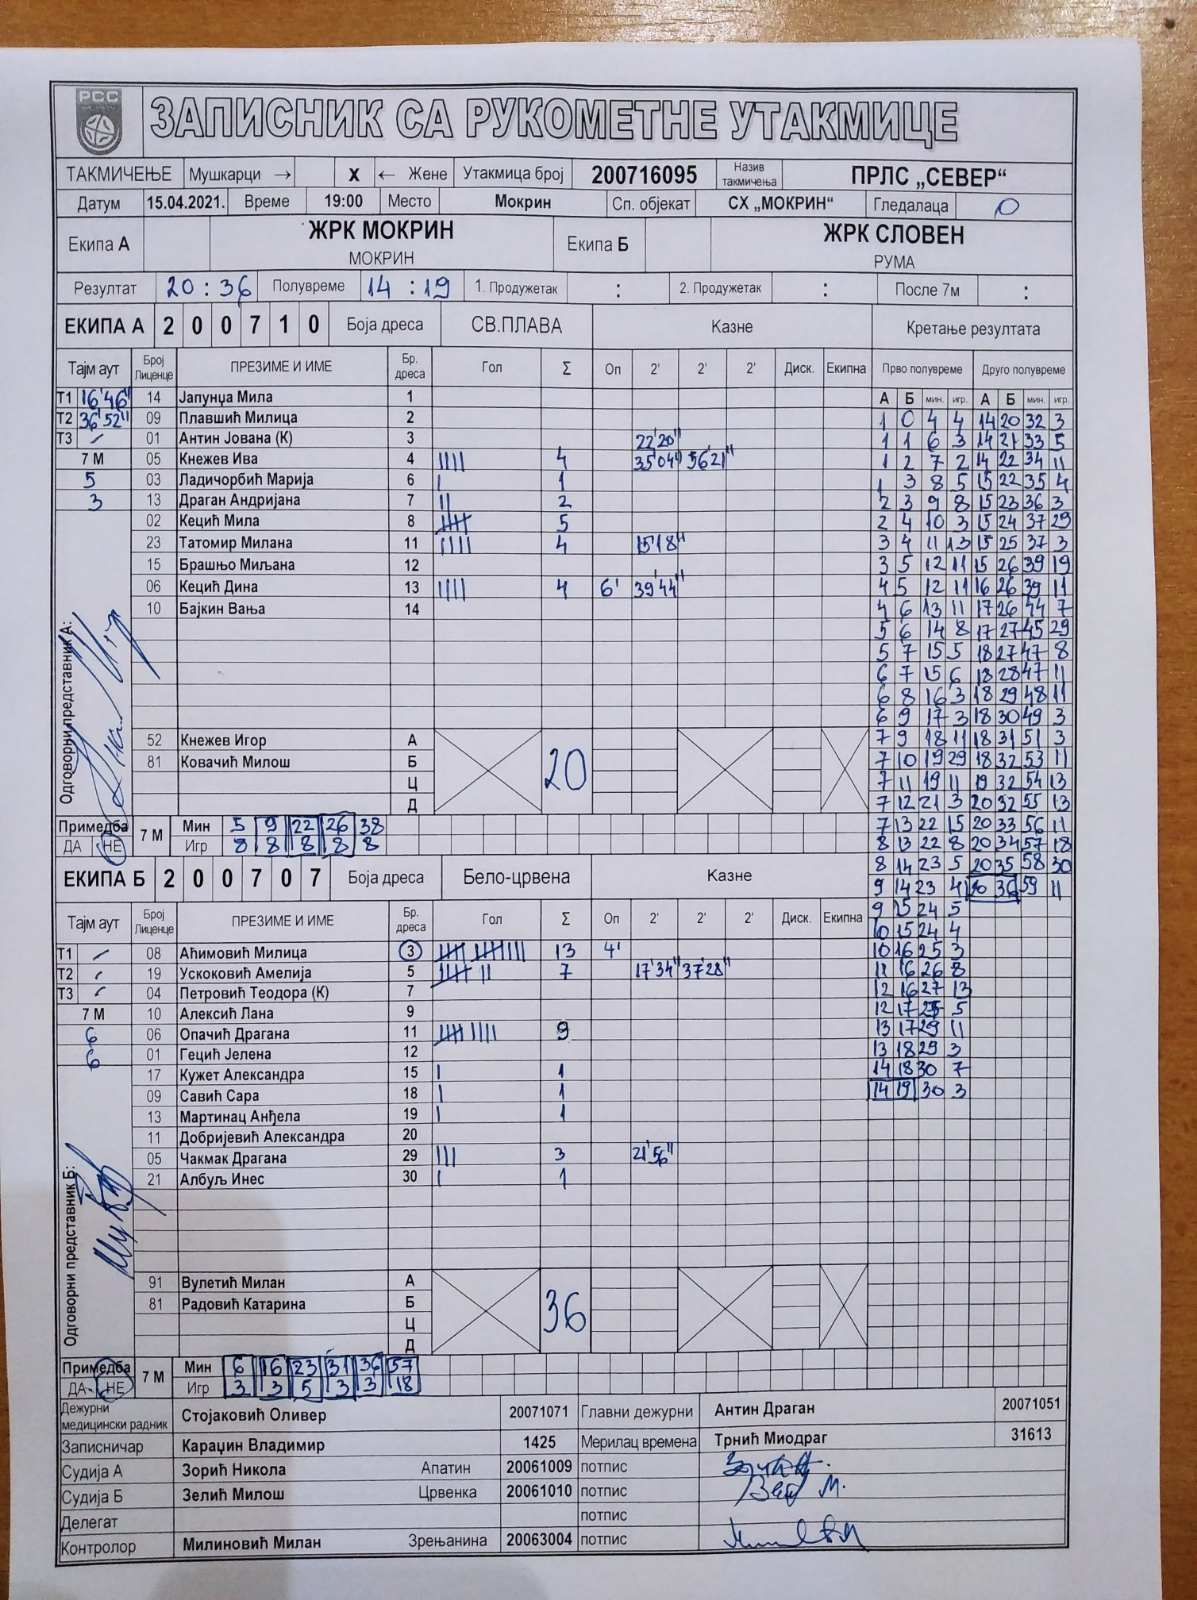 РСС
ЗАПИСНИК СА РУКОМЕТНЕ УТАКМИЦЕ
ТАКМИЧЕЊЕ Мушкарци → X ← Жене Утакмица број 200716095 Назив такмичења ПРЛС „СЕВЕР“
Датум 15.04.2021. Време 19:00 Место Мокрин Сп. објекат СХ „МОКРИН“ Гледалаца 0
Екипа А ЖРК МОКРИН Екипа Б ЖРК СЛОВЕН
МОКРИН РУМА
Резултат 20 : 36 Полувреме 14 : 19 1. Продужетак : 2. Продужетак : После 7м :
ЕКИПА А 2 0 0 7 1 0 Боја дреса СВ.ПЛАВА Казне Кретање резултата
Тајм аут Број Лиценце ПРЕЗИМЕ И ИМЕ Бр. дреса Гол Σ Оп 2' 2' 2' Диск. Екипна Прво полувреме Друго полувреме
А Б мин. игр. А Б мин. игр.
Т1 16'46" 14 Јапунџа Мила 1
Т2 36'52" 09 Плавшић Милица 2 1 0 4 4 14 20 32 3
Т3 – 01 Антин Јована (К) 3 22'20" 1 1 6 3 14 21 33 5
7 М 05 Кнежев Ива 4 |||| 4 35'04" 56'21" 1 2 7 2 14 22 34 11
5 03 Ладичорбић Марија 6 | 1 1 3 8 5 15 22 35 4
3 13 Драган Андријана 7 || 2 2 3 9 8 15 23 36 3
02 Кецић Мила 8 5 2 4 10 3 15 24 37 29
23 Татомир Милана 11 |||| 4 15'18" 3 4 11 13 15 25 37 3
15 Брашњо Миљана 12 3 5 12 11 15 26 39 19
06 Кецић Дина 13 |||| 4 6' 39'44" 4 5 12 11 16 26 39 11
10 Бајкин Вања 14 4 6 13 11 17 26 44 7
5 6 14 8 17 27 45 29
5 7 15 5 18 27 47 8
6 7 15 6 18 28 47 11
6 8 16 3 18 29 48 11
6 9 17 3 18 30 49 3
52 Кнежев Игор А 20 7 9 18 11 18 31 51 3
81 Ковачић Милош Б 7 10 19 29 18 32 53 11
Ц 7 11 19 11 19 32 54 13
Д 7 12 21 3 20 32 55 13
Одговорни представник А:
Примедба 7 М Мин 5 9 22 26 38 7 13 22 15 20 33 56 11
ДА НЕ Игр 8 8 8 8 8 8 13 22 8 20 34 57 18
ЕКИПА Б 2 0 0 7 0 7 Боја дреса Бело-црвена Казне 8 14 23 5 20 35 58 30
9 14 23 4 20 36 59 11
Тајм аут Број Лиценце ПРЕЗИМЕ И ИМЕ Бр. дреса Гол Σ Оп 2' 2' 2' Диск. Екипна 9 15 24 5
10 15 24 4
Т1 – 08 Аћимовић Милица 3 13 4' 10 16 25 3
Т2 – 19 Ускоковић Амелија 5 7 17'34" 37'28" 11 16 26 8
Т3 – 04 Петровић Теодора (К) 7 12 16 27 13
7 М 10 Алексић Лана 9 12 17 5
6 06 Опачић Драгана 11 9 13 17 29 11
6 01 Гецић Јелена 12 13 18 29 3
17 Кужет Александра 15 | 1 14 18 30 7
09 Савић Сара 18 | 1 14 19 30 3
13 Мартинац Анђела 19 | 1
11 Добријевић Александра 20
05 Чакмак Драгана 29 ||| 3 21'56"
21 Албуљ Инес 30 | 1
Одговорни представник Б:
91 Вулетић Милан А 36
81 Радовић Катарина Б
Ц
Д
Примедба 7 М Мин 6 16 23 31 36 57
ДА НЕ Игр 3 3 5 3 3 18
Дежурни медицински радник Стојаковић Оливер 20071071 Главни дежурни Антин Драган 20071051
Записничар Караџин Владимир 1425 Мерилац времена Трнић Миодраг 31613
Судија А Зорић Никола Апатин 20061009 потпис
Судија Б Зелић Милош Црвенка 20061010 потпис
Делегат потпис
Контролор Милиновић Милан Зрењанина 20063004 потпис